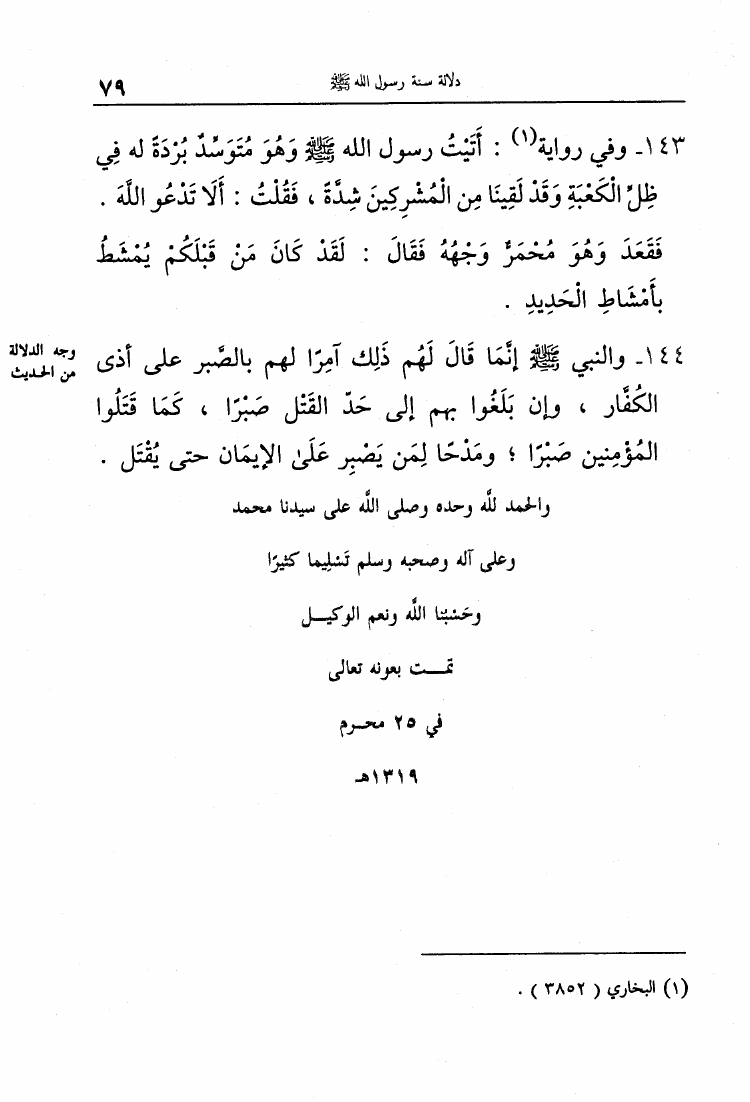 دلالة سنة رسول الله ﷺ
٧٩
١٤٣ـ وفي رواية(١) : أَتَيْتُ رسول الله ﷺ وَهُوَ مُتَوَسِّدٌ بُرْدَةً له فِي
ظِلِّ الْكَعْبَةِ وَقَدْ لَقِينَا مِن الْمُشْرِكِينَ شِدَّةً ، فَقُلْتُ : أَلَا تَدْعُو اللَّهَ .
فَقَعَدَ وَهُوَ مُحْمَرٌّ وَجْهُهُ فَقَالَ : لَقَدْ كَانَ مَنْ قَبْلَكُمْ يُمْشَطُ
بِأَمْشَاطِ الْحَدِيدِ .
وجه الدلالة
من الحديث
١٤٤ـ والنبي ﷺ إِنَّمَا قَالَ لَهُم ذَلِك آمِرًا لهم بالصَّبر على أذى
الكُفَّار ، وإن بَلَغُوا بهم إلى حَدّ القَتْل صَبْرًا ، كَمَا قَتَلُوا
المُؤْمِنين صَبْرًا ؛ ومَدْحًا لِمَن يَصْبِر عَلَىٰ الإيمَان حتى يُقْتَل .
والحمد للَّه وحده وصلى اللَّه على سيدنا محمد
وعلى آله وصحبه وسلم تَسْلِيما كثيرًا
وحَسْبُنا اللَّه ونعم الوكيـل
تمـت بعونه تعالى
في ٢٥ محـرم
١٣١٩هـ
(١) البخاري ( ٣٨٥٢ ) .